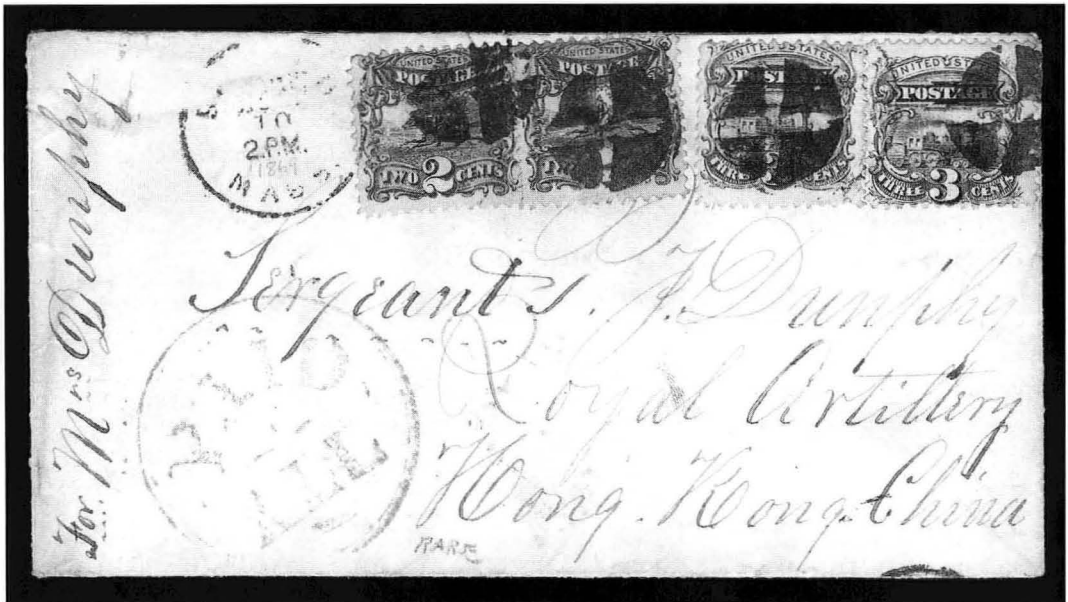 For. Mrs Dunphy
10
2.P.M.
1869
MASS
UNITED STATES
POSTAGE
TWO 2 CENTS
UNITED STATES
UNITED STATES
POSTAGE
THREE CENTS
UNITED STATES
POSTAGE
THREE 3 CENTS
Sergeant s. J. Dunphy
Royal Artillery
Hong. Kong. China
PAID
ALL
RARE